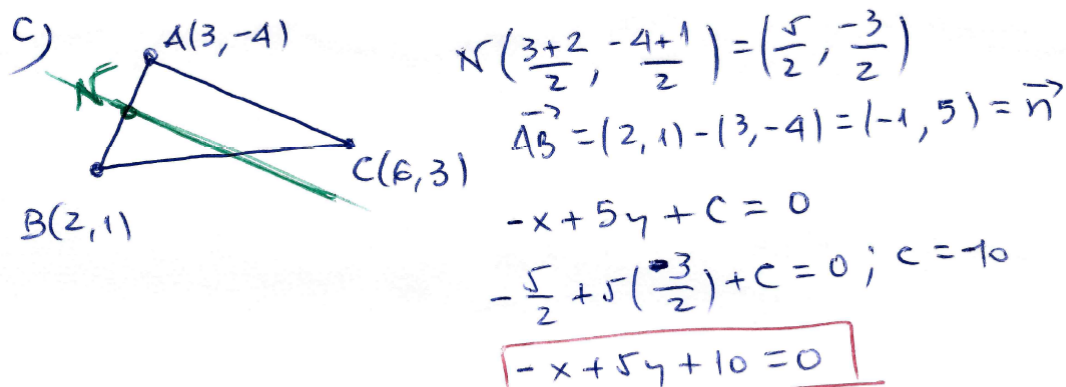 C)
A(3,-4)
N
C(6,3)
B(2,1)
N(3+2/2, -4+1/2) = (5/2, -3/2)
AB→ = (2,1)-(3,-4) = (-1,5) = n→
-x+5y+C = 0
-5/2 + 5(-3/2)+C = 0; c = 10
-x+5y+10 = 0